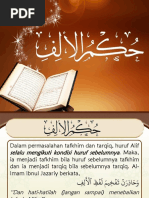 حُكْمُ الْأَلِفِ
حُكْمُ الْأَلِفِ
Dalam permasalahan tafkhim dan tarqiq, huruf Alif
selalu mengikuti kondisi huruf sebelumnya. Maka,
ia menjadi tafkhim bila huruf sebelumnya tafkhim
dan ia menjadi tarqiq bila sebelumnya tarqiq. Al-
Imam Ibnul Jazariy berkata,
وَحَاذِرَنْ تَفْخِيمَ لَفْظِ الْأَلِفِ
"Dan hati-hatilah (jangan sampai) menebalkan